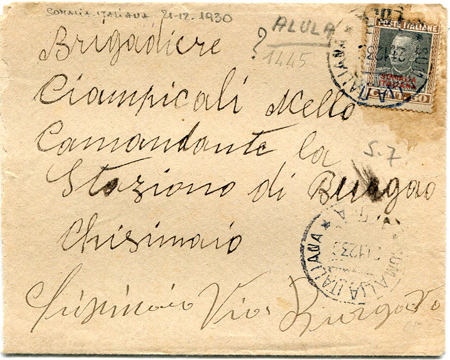 SOMALIA ITALIANA 21-12-1930
ALULA
?
1445
POSTE ITALIANE
SOMALIA
ITALIANA
50
Brigadiere
Ciampicali Mello
Comandante la
S.7
Stazione di Burgao
Chisimaio
SOMALIA ITALIANA
Chisimaio Via Burgao